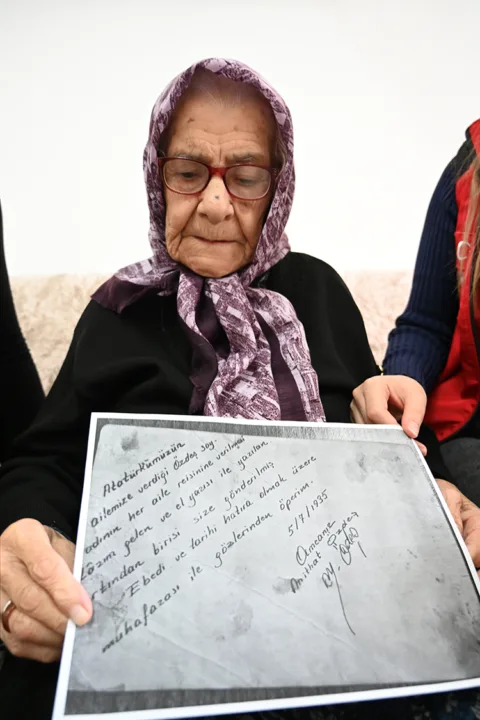 Atatürkümüzün
ailemize verdiği Özdeş soy-
adının her aile reisinine verilmek
gelen ve el yazısı ile yazılan
birisi size gönderilmiş
Ebedi ve tarihi hatıra olmak üzere
muhafazası ile gözlerinden öperim.
5/7/1935
Amcanız
Mithat Özdeş